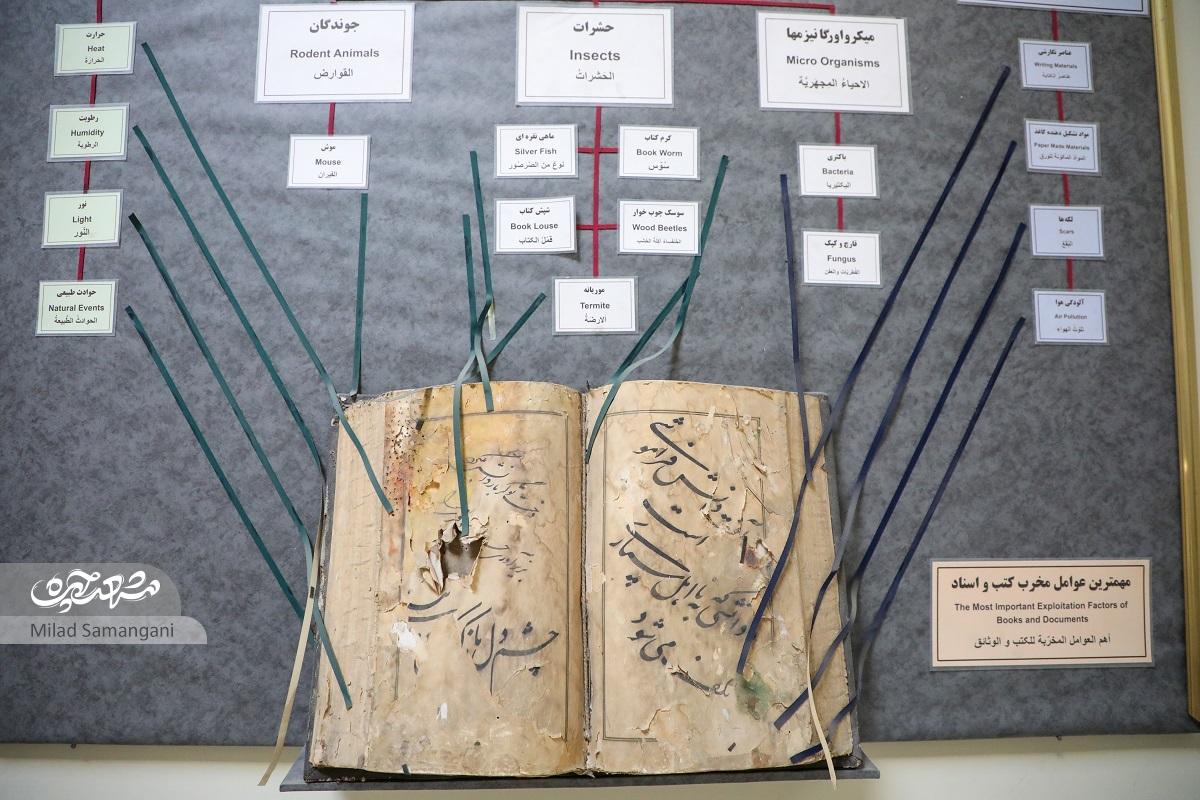 حرارت
Heat
الحرارة
رطوبت
Humidity
الرطوبة
نور
Light
النُور
حوادث طبیعی
Natural Events
الحوادثُ الطَّبیعةُ
جوندگان
Rodent Animals
القوارض
موش
Mouse
الفیران
حشرات
Insects
الحَشَراتُ
ماهی نقره ای
Silver Fish
نوعٌ من الصُرصُور
کرم کتاب
Book Worm
سُوس
شپش کتاب
Book Louse
قَمْلُ الکتاب
سوسک چوب خوار
Wood Beetles
الخُنفساءُ آکلةُ الخشب
موریانه
Termite
الارضَةُ
میکرواورگانیزمها
Micro Organisms
الاحیاءُ المجهَریَّة
باکتری
Bacteria
البکتیریا
قارچ و کپک
Fungus
الفُطریّات والعفن
عناصر نگارشی
Writing Materials
عناصر الکتابة
مواد تشکیل دهنده کاغذ
Paper Made Materials
لکه‌ها
Scars
البُقَعُ
آلودگی هوا
Air Pollution
تلوّثُ الهواء
مهمترین عوامل مخرب کتب و اسناد
The Most Important Exploitation Factors of
Books and Documents
أهم العوامل المخرّبة للکتب و الوثائق
است
می شود
شهرآرا
Milad Samangani